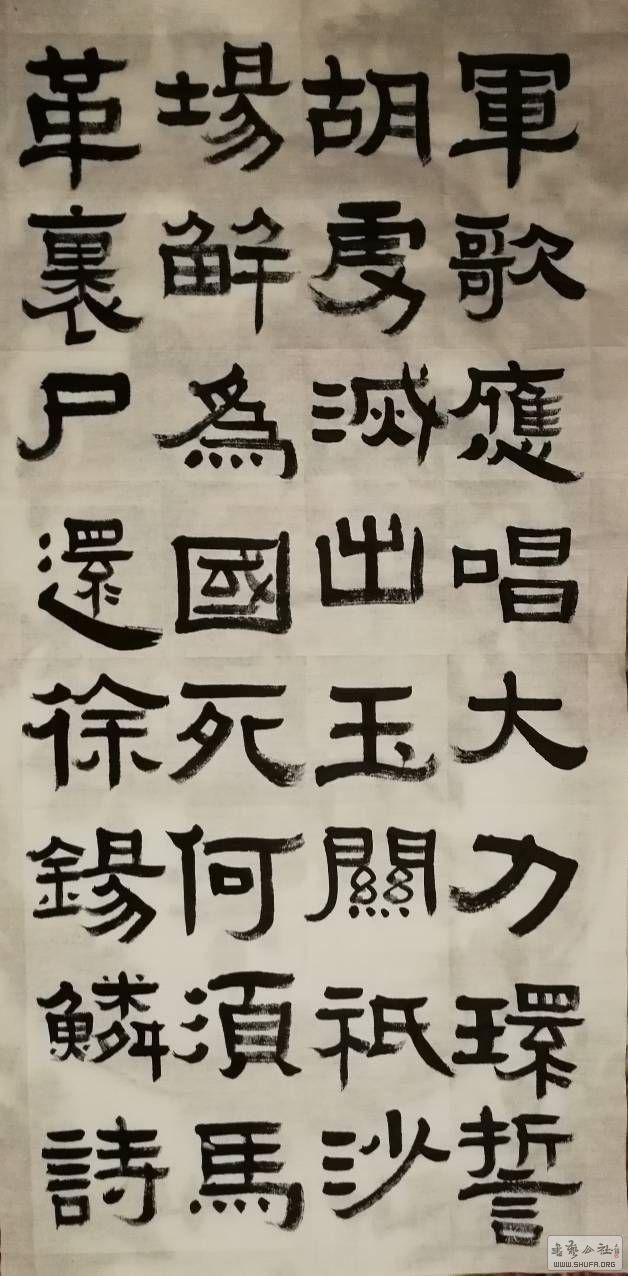 軍歌應唱大力環誓
胡虜滅出玉關祇沙
場觧為國死何湏馬
革裹尸還徐錫鱗詩
書藝公社
WWW.SHUFA.ORG